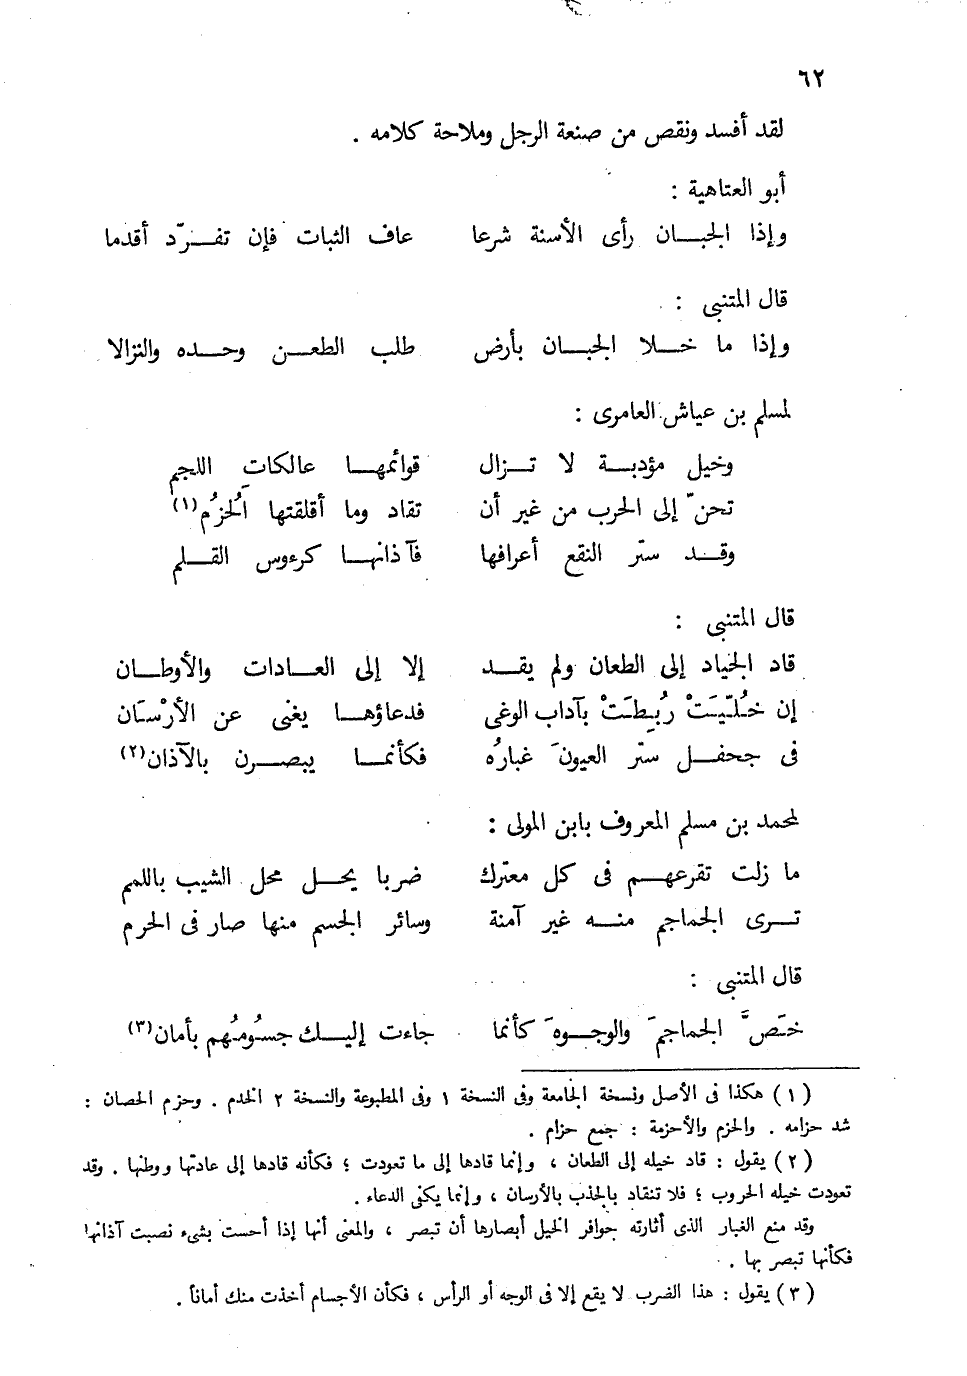 ٦٢
لقد أفسد ونقص من صنعة الرجل وملاحة كلامه .
أبو العتاهية :
وإذا الجبــان رأى الأسنة شرعا عاف الثبات فإن تفــرّد أقدما
قال المتنبى :
وإذا ما خــلا الجبــان بأرض طلب الطعــن وحــده والنزالا
لمسلم بن عياش العامرى :
وخيل مؤدبــة لا تــزال قوائمهــا عالكاتِ اللجم
تحنّ إلى الحرب من غير أن تقاد وما أقلقتها اَلحُزُم(١)
وقــد ستر النقع أعرافها فآذانهــا كرءوس القــلم
قال المتنبى :
قاد الجياد إلى الطعان ولم يقــد إلا إلى العــادات والأوطــان
إن خُلّيَتْ رُبِطَتْ بآداب الوغى فدعاؤهــا يغنى عن الأرْسَان
فى جحفــل ستر العيونَ غبارُه فكأنمــا يبصــرن بالآذان(٢)
لمحمد بن مسلم المعروف بابن المولى :
ما زلت تقرعهــم فى كل معترك ضربا يحــل محل الشيب باللمم
تــرى الجماجم منــه غير آمنة وسائر الجسم منها صار فى الحرم
قال المتنبى :
خَصَّ الجماجمَ والوجــوهَ كأنما جاءت إليــك جسُومُهم بأمان(٣)
(١) هكذا فى الأصل ونسخة الجامعة وفى النسخة ١ وفى المطبوعة والنسخة ٢ الخدم . وحزم الحصان :
شد حزامه . والحزم والأحزمة : جمع حزام .
(٢) يقول : قاد خيله إلى الطعان ، وإنما قادها إلى ما تعودت ؛ فكأنه قادها إلى عادتها ووطنها . وقد
تعودت خيله الحروب ؛ فلا تنقاد بالجذب بالأرسان ، وإنما يكفى الدعاء .
وقد منع الغبار الذى أثارته حوافر الخيل أبصارها أن تبصر ، والمعنى أنها إذا أحست بشىء نصبت آذانها
فكأنها تبصر بها .
(٣) يقول : هذا الضرب لا يقع إلا فى الوجه أو الرأس ، فكأن الأجسام أخذت منك أماناً .